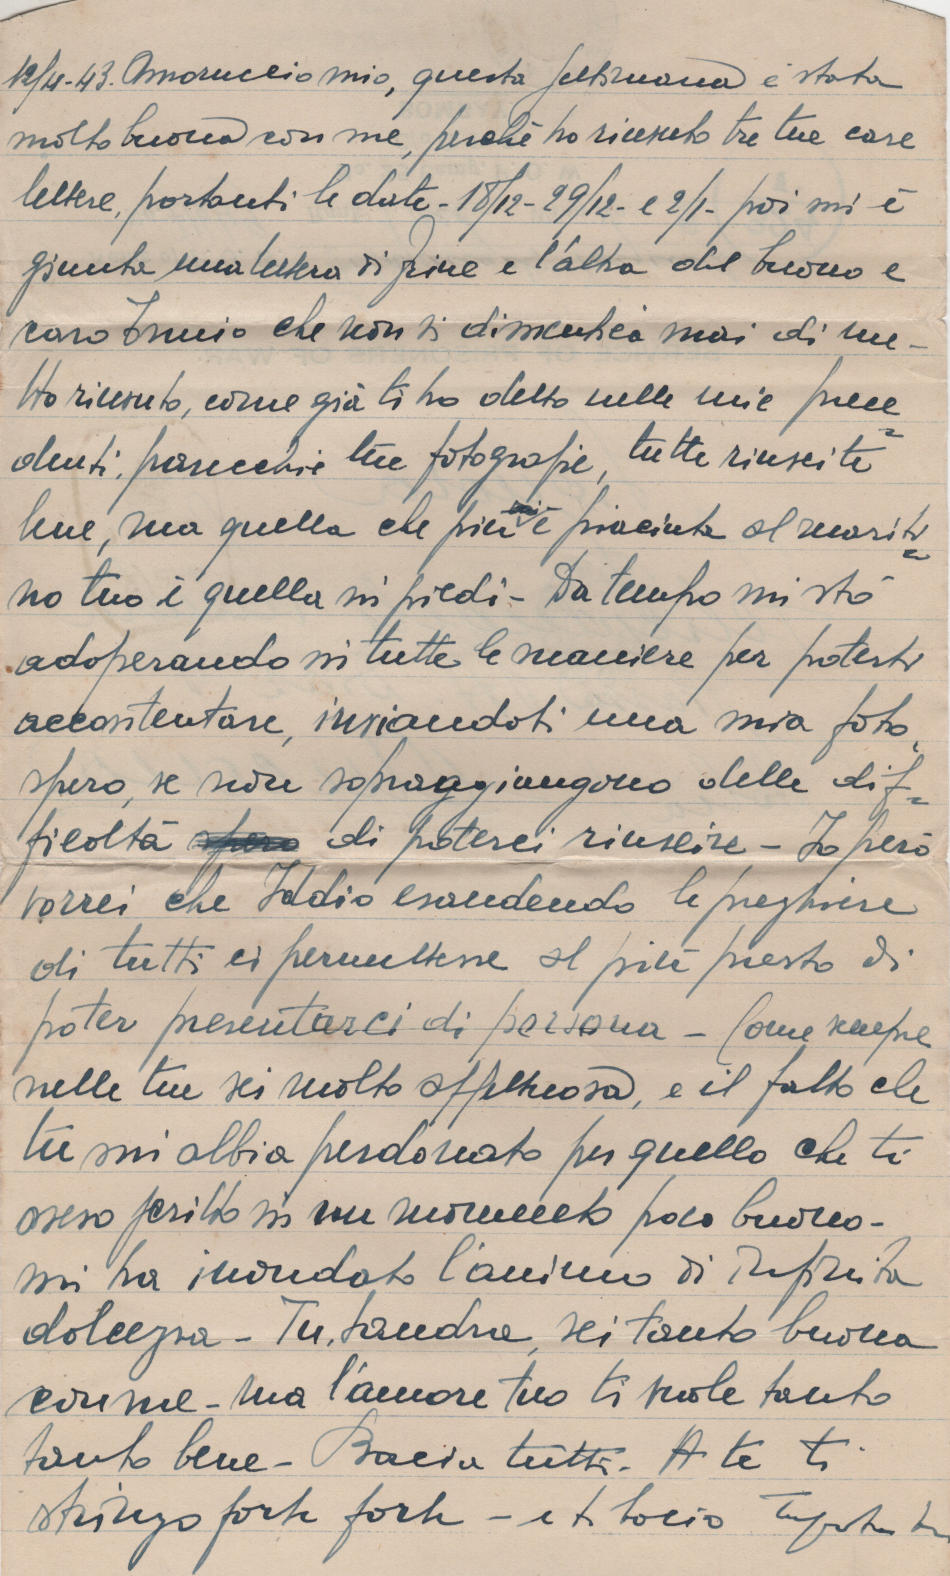 12/4-43. Amoruccio mio, questa settimana è stata
molto buona con me, perchè ho ricevuto tre tue care
lettere, portanti le date - 18/12 - 29/12 - e 2/1 - poi mi è
giunta una lettera di e l'altra del buono e
caro che non si dimentica mai di me -
Ho ricevuto, come già ti ho detto nelle mie prece=
denti, parecchie tue fotografie, tutte riuscite
bene, ma quella che più è piaciuta al mariti=
no tuo è quella in piedi - Da tempo mi stò
adoperando in tutte le maniere per poterti
accontentare, inviandoti una mia foto,
spero, se non sopraggiungono delle dif=
ficoltà di poterci riuscire - Io però
vorrei che Iddio esaudendo le preghiere
di tutti ci permettesse al più presto di
poter presentarci di persona - Come sempre
nelle tue sei molto affettuosa, e il fatto che
tu mi abbia perdonato per quello che ti
avevo scritto in un momento poco buono -
mi ha inondato l'animo di infinita
dolcezza - Tu, sei tanto buona
con me - ma l'amore tuo ti vuole tanto
tanto bene - Bacia tutti. A te ti
stringo forte forte - e ti bacio